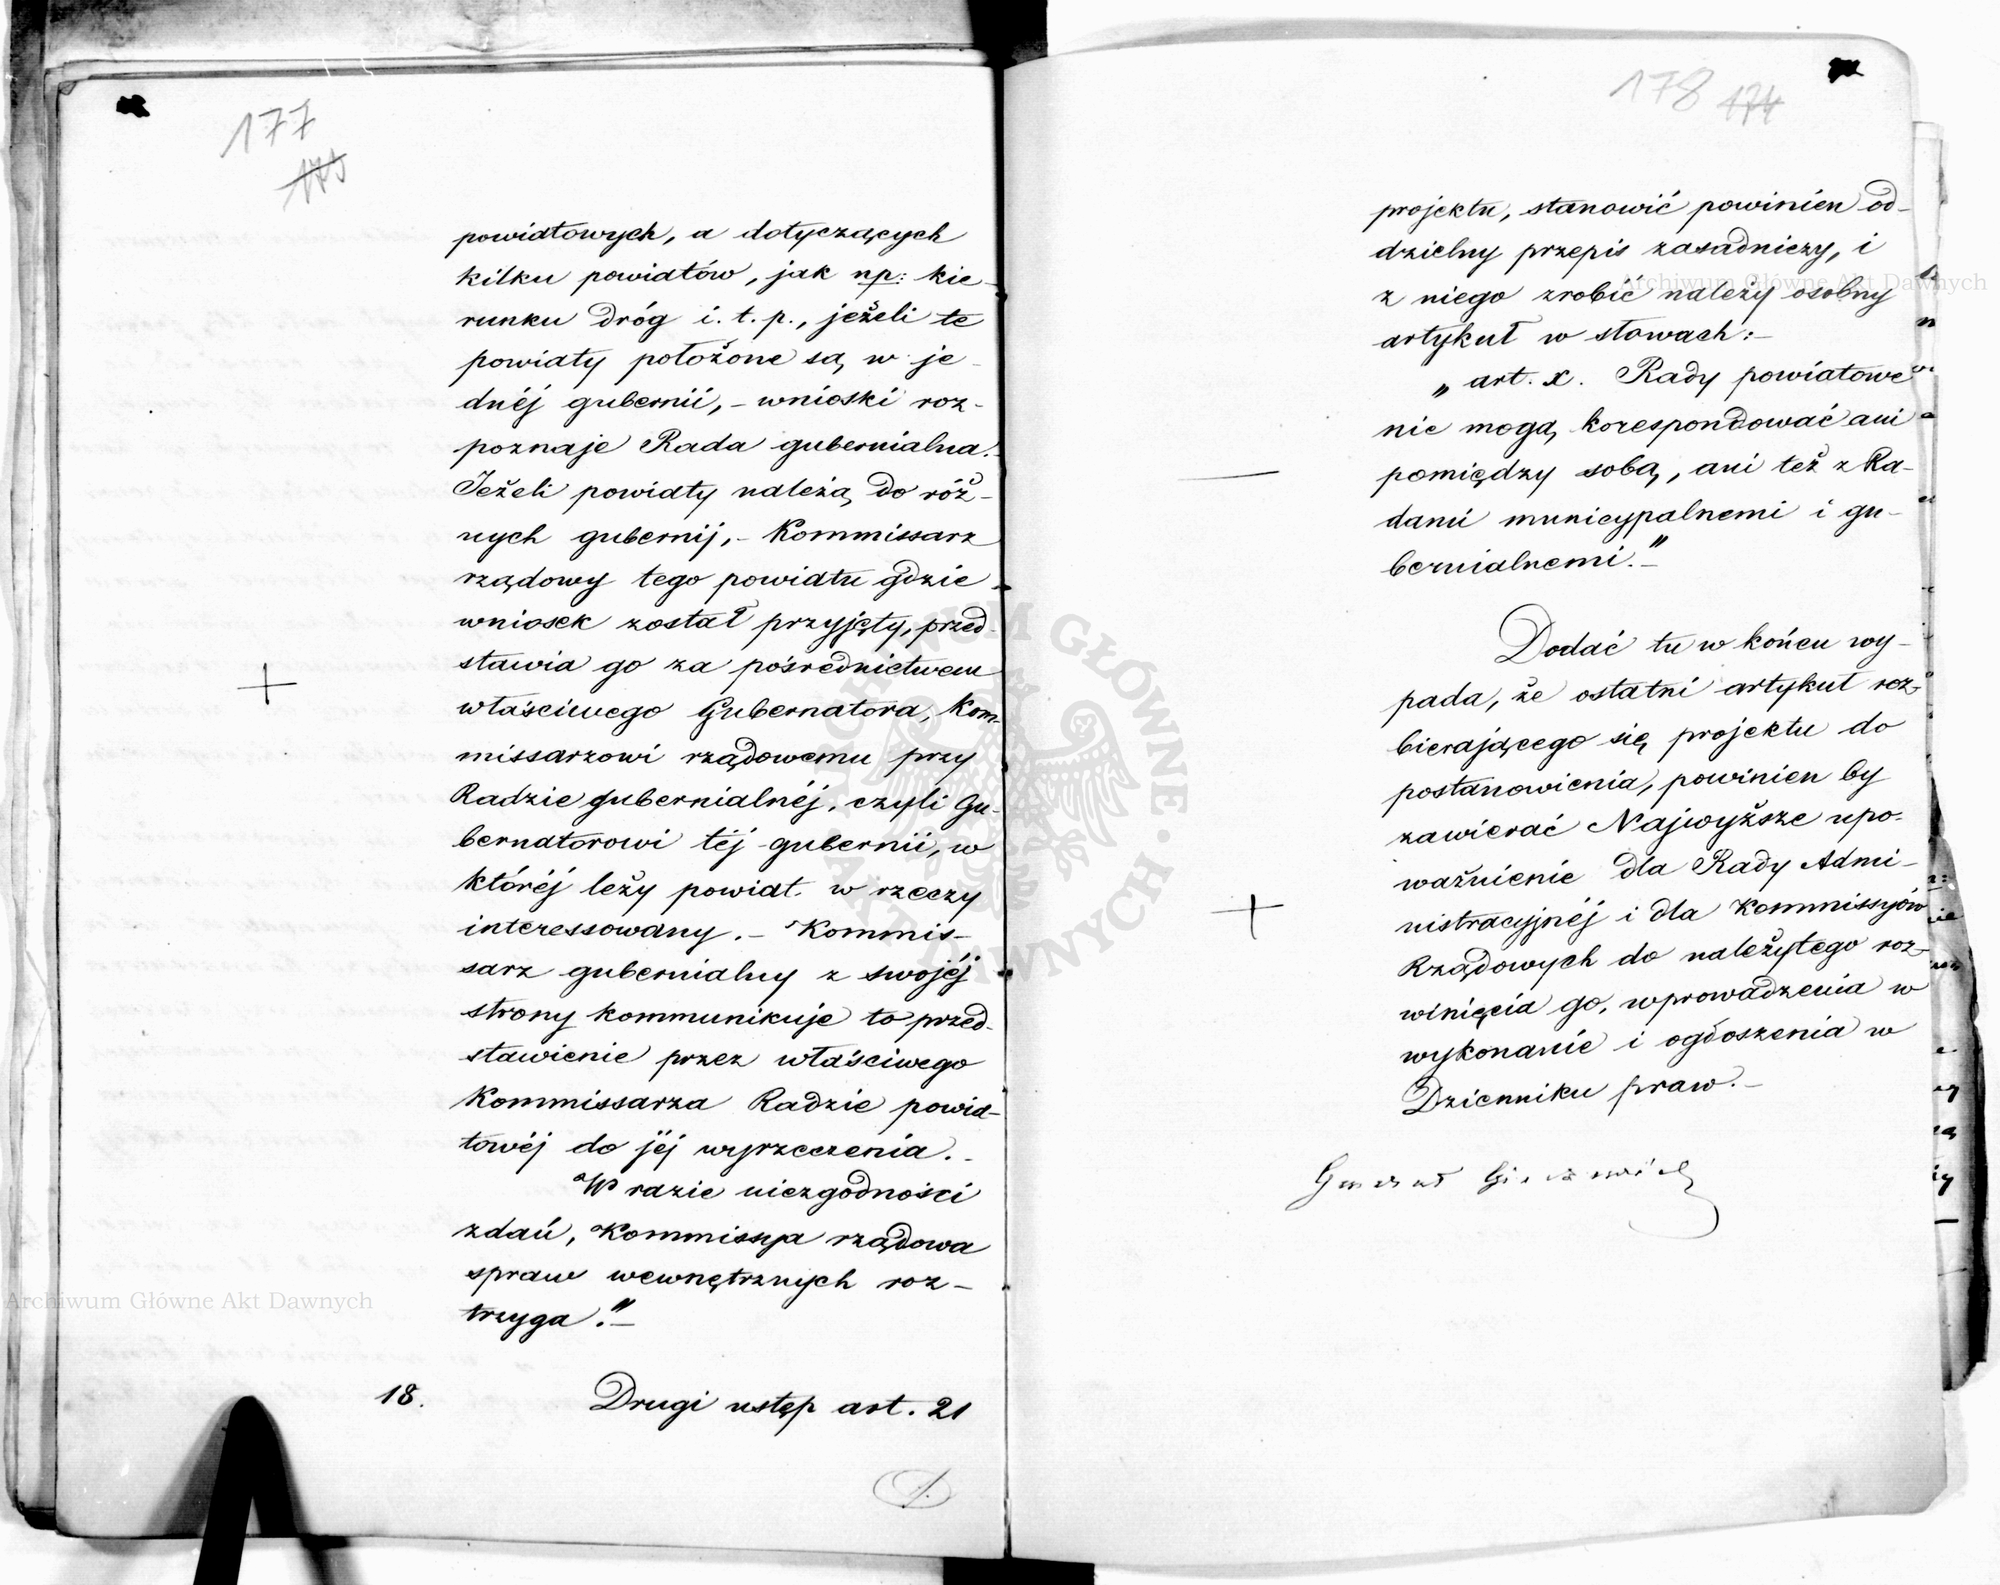 177
173
powiatowych, a dotyczących
kilku powiatów, jak np: kie-
runku dróg i. t. p., jeżeli te
powiaty położone są, w je-
dnéj gubernii, – wnioski roz-
poznaje Rada gubernialna.–
Jeżeli powiaty należą, do róż-
nych gubernij, – Kommissarz
rządowy tego powiatu gdzie
wniosek został przyjęty, przed-
stawia go za pośrednictwem
właściwego Gubernatora, Kom-
missarzowi rządowemu przy
Radzie gubernialnéj, czyli Gu-
bernatorowi téj gubernii, w
któréj leży powiat w rzeczy
interessowany. – Kommis-
sarz gubernialny z swojéj
strony kommunikuje to przed-
stawienie przez właściwego
Kommissarza Radzie powia-
towéj do jéj wyrzeczenia. –
W razie niezgodności
zdań, Kommissya rządowa
spraw wewnętrznych roz-
trzyga." –
18. Drugi ustęp art. 21
178 174
projektu, stanowić powinien od-
dzielny przepis zasadniczy, i
z niego zrobić należy osobny
artykuł w słowach: –
„ art. x. Rady powiatowe
nie mogą, korespondować ani
pomiędzy sobą, ani też z Ra-
dami municypalnemi i gu-
bernialnemi." –
Dodać tu w końcu wy-
pada, że ostatni artykuł roz-
bierającego się projektu do
postanowienia, powinien by
zawierać Najwyższe upo-
ważnienie dla Rady Admi-
nistracyjnéj i dla Kommissyów
Rządowych do należytego roz-
winięcia go, wprowadzenia w
wykonanie i ogłoszenia w
Dzienniku praw. –
Archiwum Główne Akt Dawnych
Archiwum Główne Akt Dawnych
ARCHIWUM GŁÓWNE AKT DAWNYCH